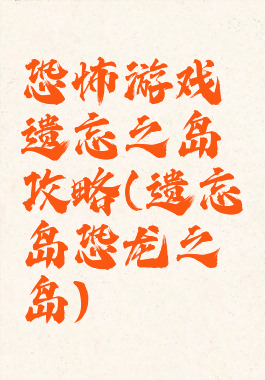 恐怖游戏
遗忘之岛
攻略(遗忘
岛恐龙之
岛)